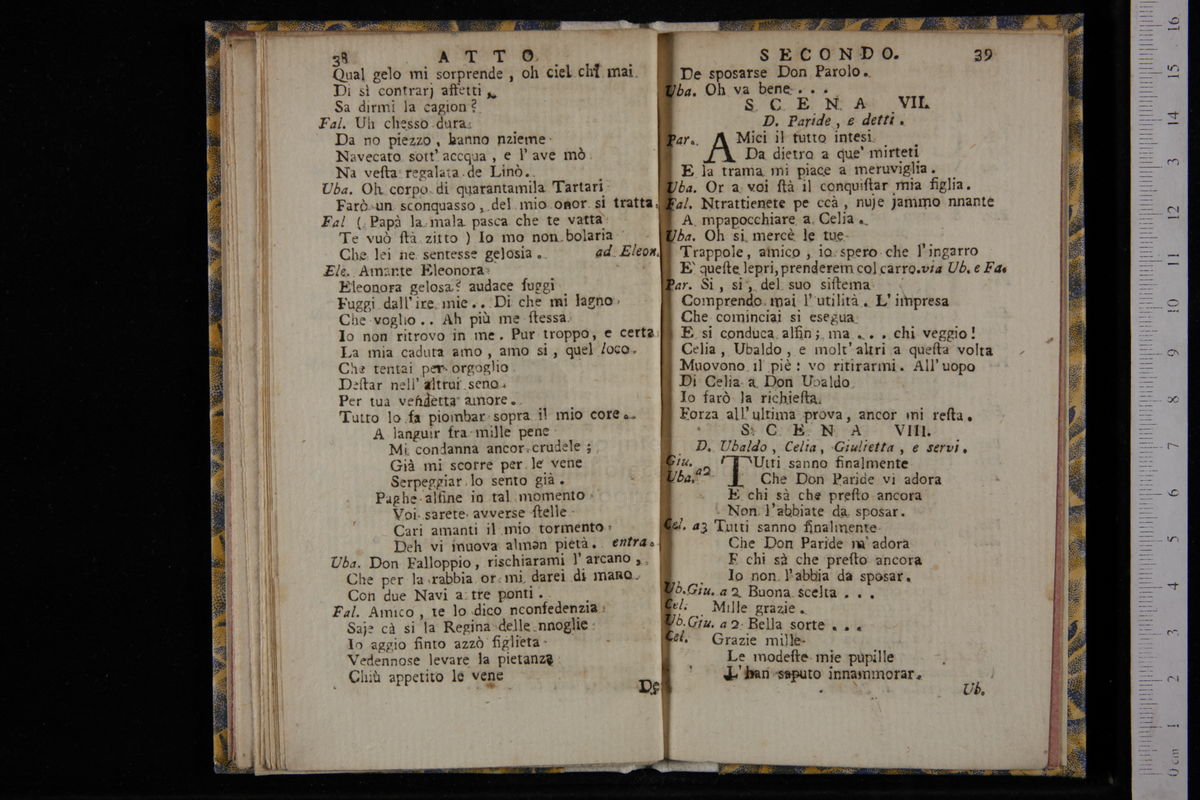 38 ATTO
Qual gelo mi sorprende, oh ciel chi mai
Di sì contrarj affetti,
Sa dirmi la cagion?
Fal. Uh chesso dura
Da no piezzo, hanno nzieme
Navecato sott' accqua, e l' ave mò
Na veſta regalata de Linò.
Uba. Oh corpo di quarantamila Tartari
Farò un sconquasso, del mio onor si tratta.
Fal (Papà la mala pasca che te vatta
Te vuò ſtà zitto) Io mo non bolaria
Che lei ne sentesse gelosia. ad Eleon.
Ele. Amante Eleonora
Eleonora gelosa? audace fuggi
Fuggi dall' ire mie.. Di che mi lagno,
Che voglio.. Ah più me ſtessa
Io non ritrovo in me. Pur troppo, e certa
La mia caduta amo, amo si, quel loco.
Che tentai per orgoglio
Deſtar nell' altrui seno.
Per tua vendetta amore.
Tutto lo fa piombar sopra il mio core.
A languir fra mille pene
Mi condanna ancor crudele;
Già mi scorre per le vene
Serpeggiar lo sento già.
Paghe alfine in tal momento
Voi sarete avverse ſtelle
Cari amanti il mio tormento,
Deh vi muova almen pietà. entra.
Uba. Don Falloppio, rischiarami l' arcano,
Che per la rabbia or mi darei di mano
Con due Navi a tre ponti.
Fal. Amico, te lo dico nconfedenzia:
Saje cà si la Regina delle nnoglie
Io aggio finto azzò figlieta
Vedennose levare la pietanza
Chiù appetito le vene
De
SECONDO. 39
De sposarse Don Parolo.
Uba. Oh va bene...
SCENA VII.
D. Paride, e detti.
Par. AMici il tutto intesi
Da dietro a que' mirteti
E la trama mi piace a meruviglia.
Uba. Or a voi ſtà il conquiſtar mia figlia.
Fal. Ntrattienete pe ccà, nuje jammo nnante
A mpapocchiare a Celia.
Uba. Oh si mercè le tue
Trappole, amico, io spero che l'ingarro
E' queſte lepri, prenderem col carro. via Ub. e Fa.
Par. Si, si, del suo siſtema
Comprendo mai l' utilità. L' impresa
Che cominciai si esegua
E si conduca alfin; ma ... chi veggio!
Celia, Ubaldo, e molt' altri a queſta volta
Muovono il piè: vo ritirarmi. All' uopo
Di Celia a Don Ubaldo
Io farò la richieſta
Forza all' ultima prova, ancor mi reſta.
SCENA VIII.
D. Ubaldo, Celia, Giulietta, e servi.
Giu. Uba. a2 TUtti sanno finalmente
Che Don Paride vi adora
E chi sà che preſto ancora
Non l'abbiate da sposar.
Cel. a3 Tutti sanno finalmente
Che Don Paride m' adora
E chi sà che preſto ancora
Io non l'abbia da sposar.
Ub. Giu. a 2 Buona scelta...
Cel. Mille grazie.
Ub. Giu. a 2 Bella sorte...
Cel. Grazie mille
Le modeſte mie pupille
L' han saputo innammorar.
Ub.
0 cm 1 2 3 4 5 6 7 8 9 10 11 12 13 14 15 16